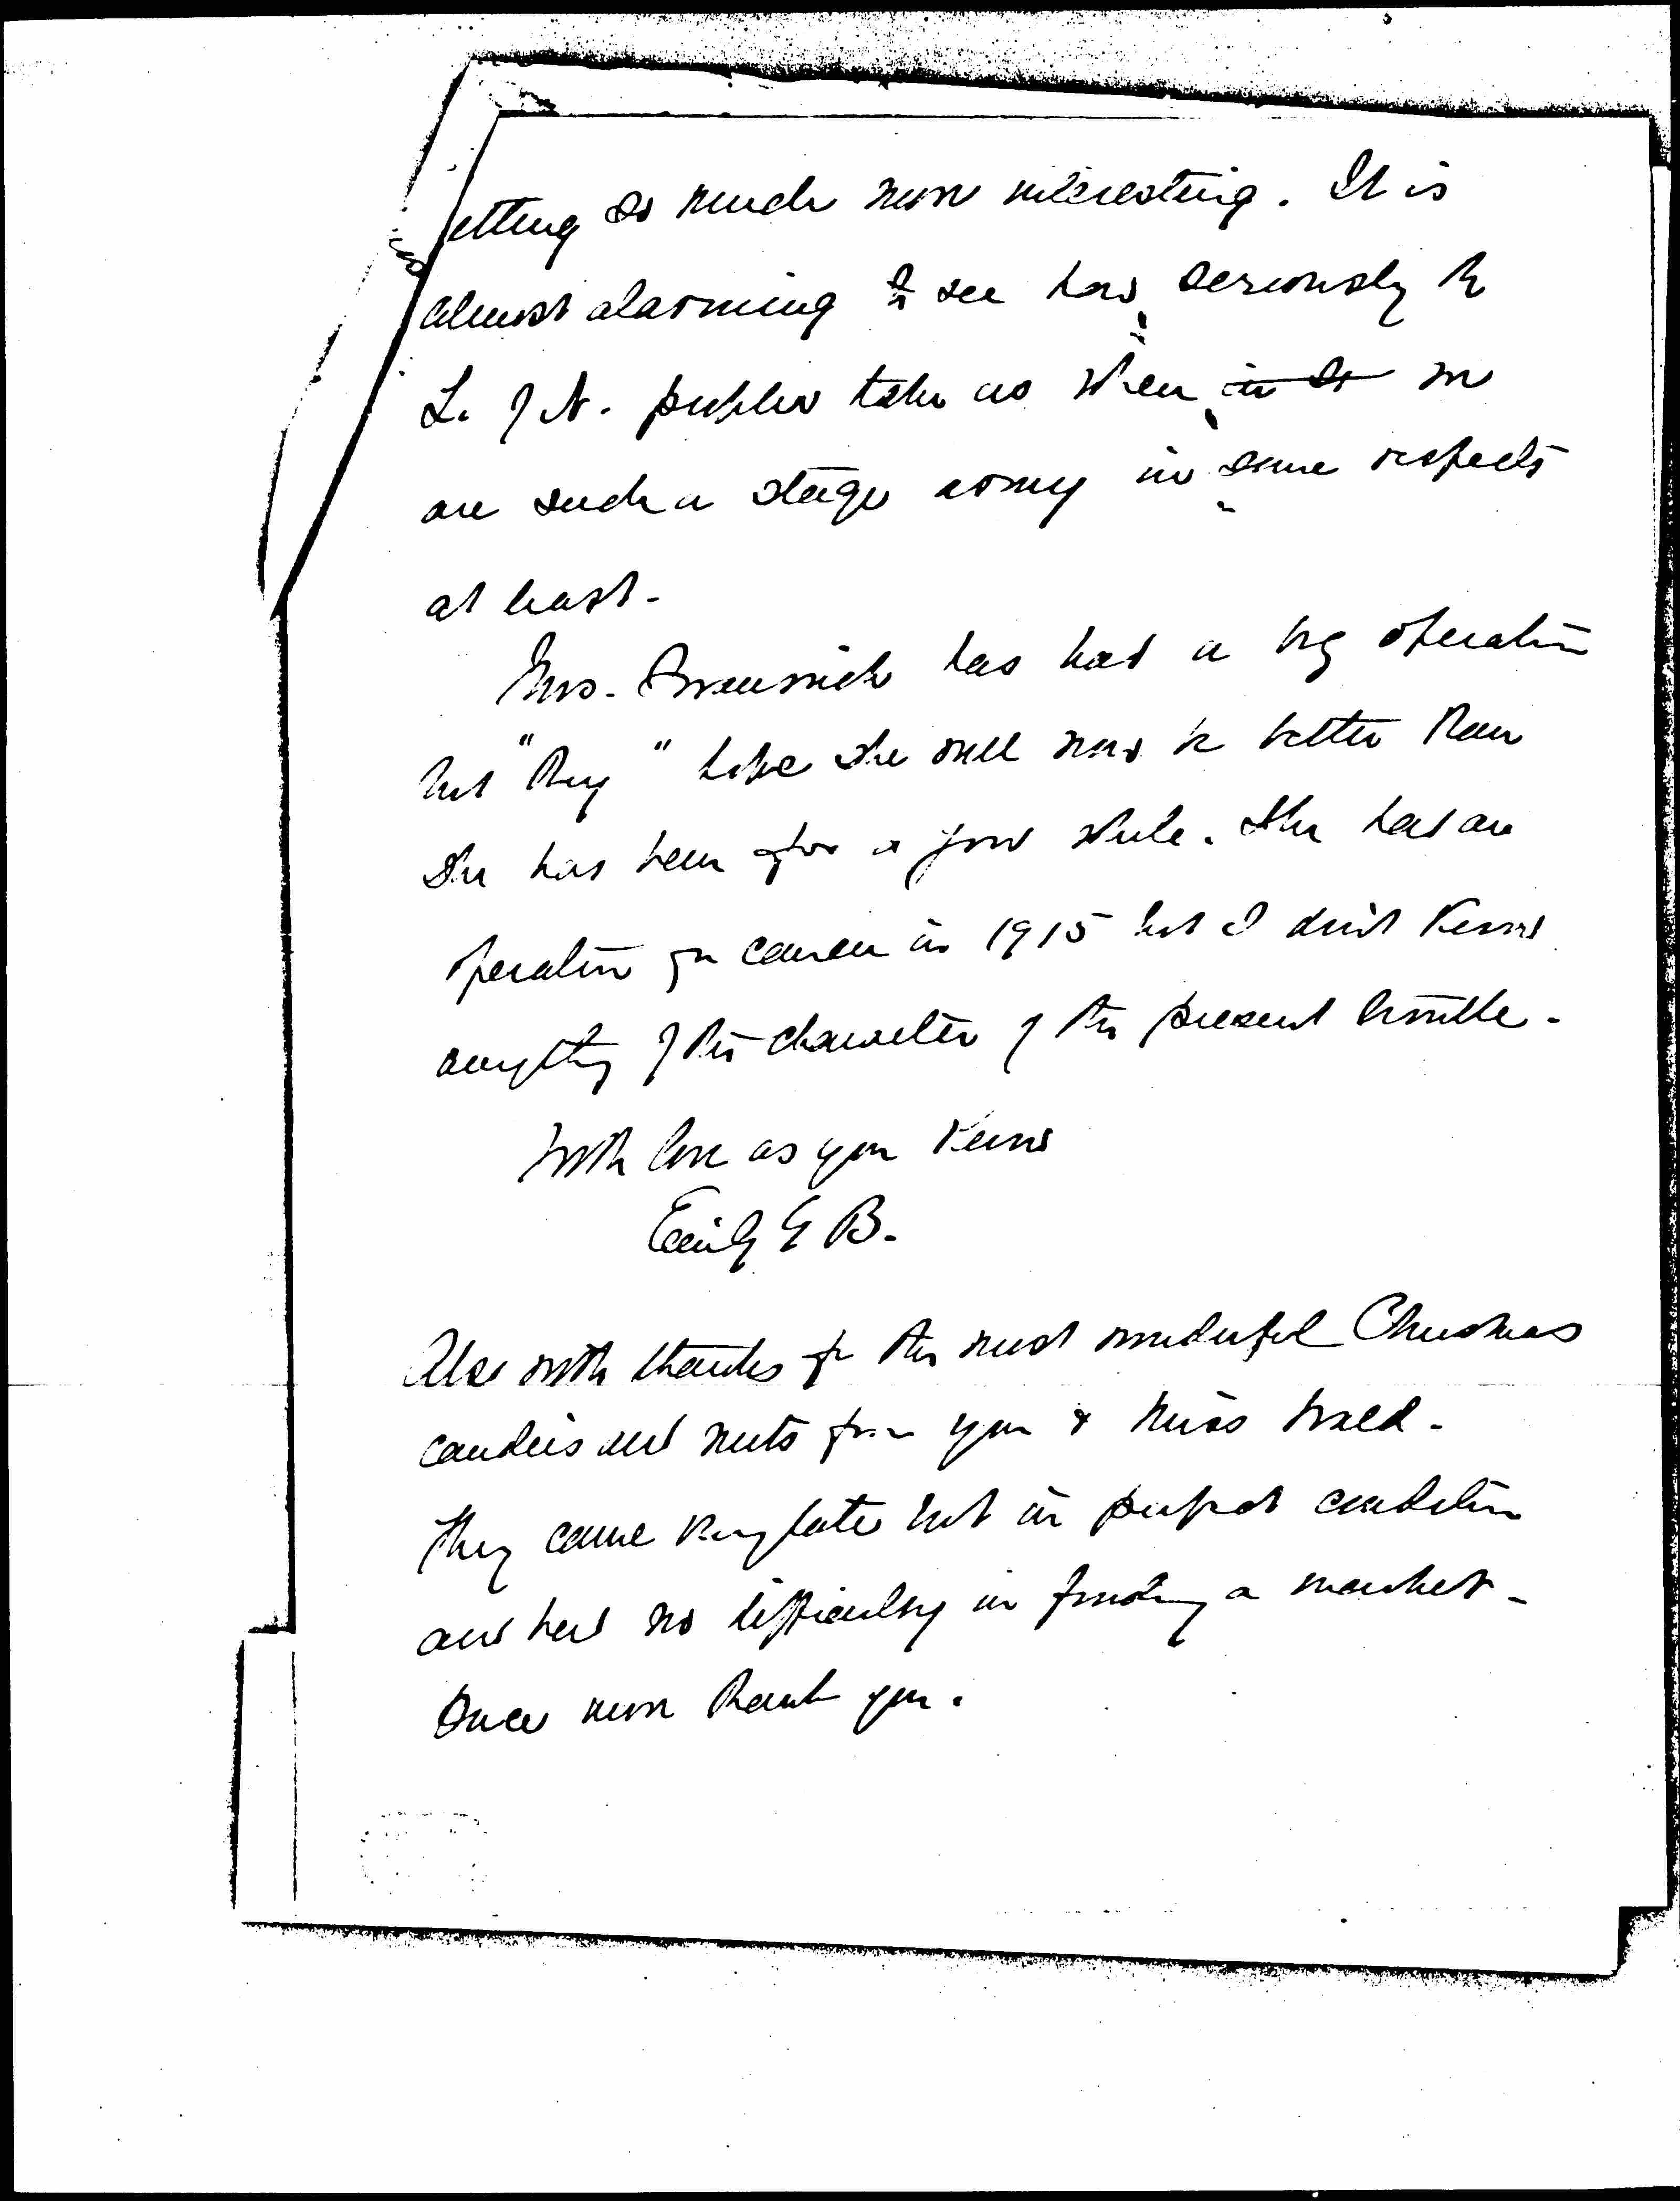 etting so much more interesting. It is
almost alarming to see how seriously the
L. of N. public take us when in so we
are such a stage army in some respects
at least.
Mrs. has had a big operation
but "they" hope she will now be better than
she has been for a good while. She had an
operation for cancer in 1915 but I don't know
anything of the character of the present trouble.
With love as you know
Emily G B.
Also with thanks for the most wonderful Christmas
candies and nuts from you & Miss Wald.
They came very late but in perfect condition
and had no difficulty in finding a market.
Once more thank you.